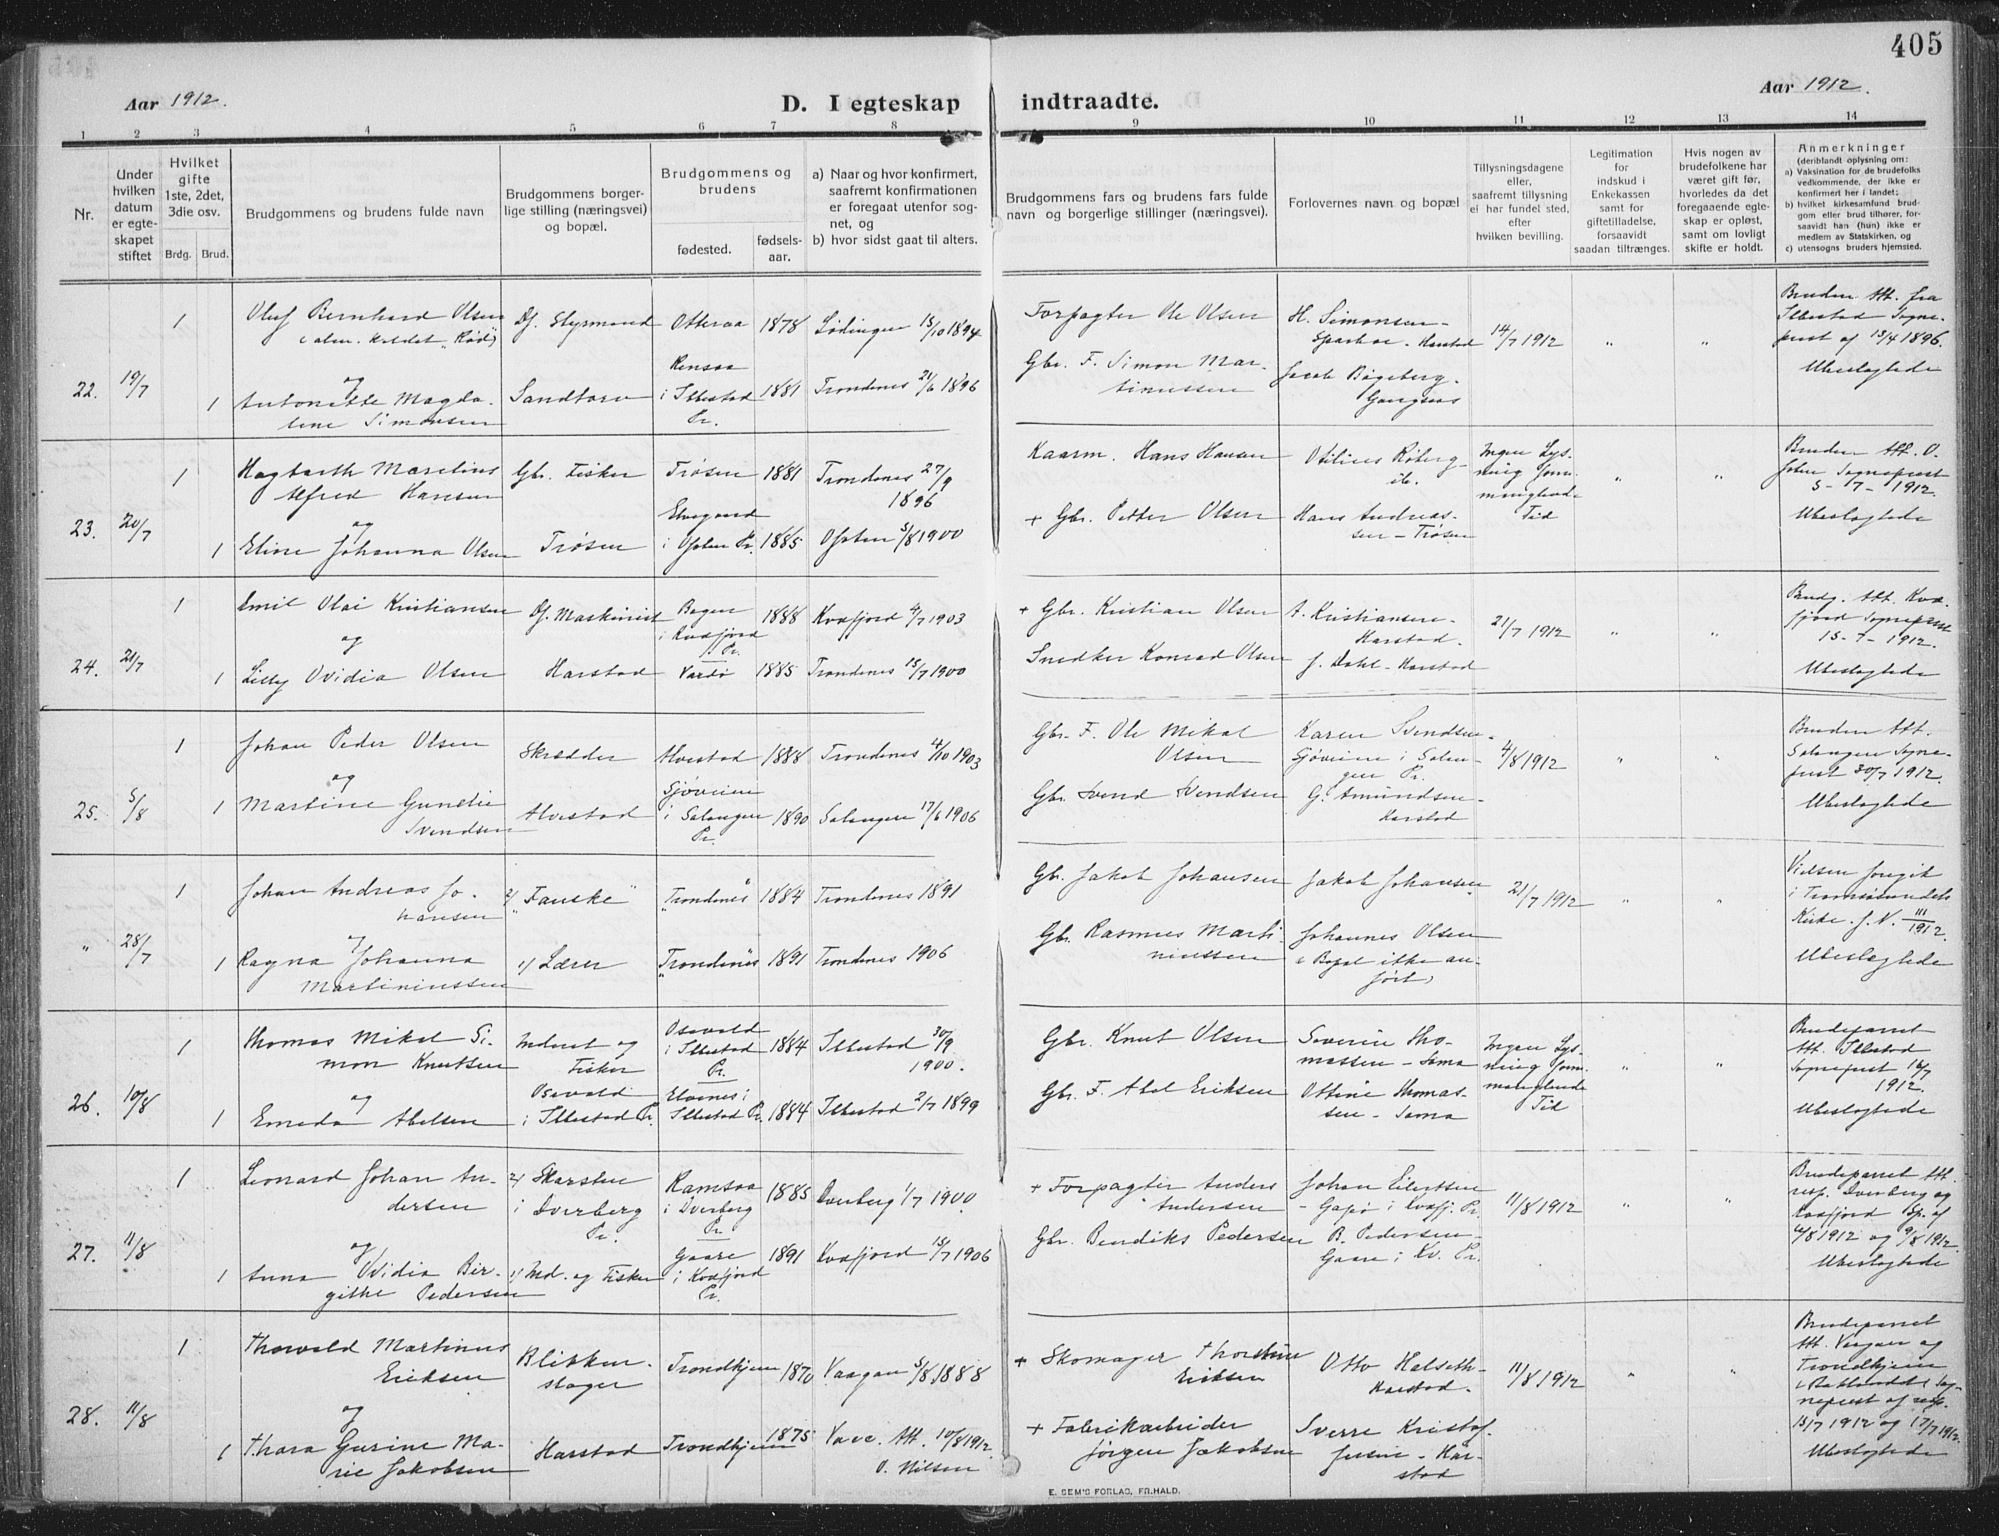 405
Aar 1912.
D. I egteskap indtraadte.
Aar 1912.
1 2 3 4 5 6 7 8 9 10 11 12 13 14
Nr.
Under
hvilken
datum
er egte-
skapet
stiftet
Hvilket
gifte
1ste, 2det,
3die osv.
Brdg. Brud.
Brudgommens og brudens fulde navn
Brudgommens borger-
lige stilling (næringsvei)
og bopæl.
Brudgommens og
brudens
fødested.
fødsels-
aar.
a) Naar og hvor konfirmert,
saafremt konfirmationen
er foregaat utenfor sog-
net, og
b) hvor sidst gaat til alters.
Brudgommens fars og brudens fars fulde
navn og borgerlige stillinger (næringsvei).
Forlovernes navn og bopæl
Tillysningsdagene
eller,
saafremt tillysning
ei har fundet sted,
efter
hvilken bevilling.
Legitimation
for
indskud i
Enkekassen
samt for
giftetilladelse,
forsaavidt
saadan tiltrænges.
Hvis nogen av
brudefolkene har
været gift før,
hvorledes da det
foregaaende egte-
skap er opløst,
samt om lovligt
skifte er holdt.
Anmerkninger
(deriblandt oplysning om:
a) Vaksination for de brudefolks
vedkommende, der ikke er
konfirmert her i landet;
b) hvilket kirkesamfund brud-
gom eller brud tilhører, for-
saavidt han (hun) ikke er
medlem av Statskirken, og
c) utensogns bruders hjemsted.
22. 19/7
1
Oluf Bernhard Olsen
(alm. kaldet "Rød")
og
1
Antonette Magda-
lene Simonsen
Df. Styrmand
Sandtorv
Otteraa 1878
Rensaa
i Ibbestad 1881
Pr.
Lødingen 15/10 1894
Trondenes 21/6 1896
Forpagter Ole Olsen
Gbr. F. Simon Mar-
tinussen
H. Simonsen-
- Harstad
Jacob Bøgeberg-
Gangsaas
14/7 1912
" "
Bruden Att. fra
Ibbestad Sogne-
prest af 13/4 1896.
Ubeslegtede
23. 20/7
1
Hagbarth Marelius
Alfred Hansen
og
1
Eline Johanna Olsen
Gbr. Fisker
Trøsen
Trøsen 1881
Elvegaard
i Ofoten Pr. 1885
Trondenes 27/9
1896
Ofoten 5/8 1900
Kaarm. Hans Hansen
+ Gbr. Petter Olsen
Otilius Røberg-
ib.
Hans Andreas-
sen - Trøsen
Ingen Lys-
ning form.
manglende
Tid
" "
Bruden Att. O-
foten Sogneprest
5-7-1912.
Ubeslegtede
24. 21/7
1
Emil Olai Kristiansen
og
1
Lilly Ovidia Olsen
Df. Maskinist
Harstad
Bogen
i Kvæfjord
Pr.
1888
Vardø 1885
Kvæfjord 4/7 1903
Trondenes 15/7 1900
+ Gbr. Kristian Olsen
Snedker Konrad Olsen
A. Kristiansen-
Harstad.
J. Dahl - Harstad
21/7 1912
" "
Brudg. Att. Kvæ-
fjord Sogneprest
15-7-1912.
Ubeslegtede
25. 5/8
1
Johan Peder Olsen
og
1
Martine Gunelie
Svendsen
Skrædder
Alvestad
Alvestad 1888
Sjøveien
i Salangen 1890
Pr.
Trondenes 4/10 1903
Salangen 17/6 1906
Gbr. F. Ole Mikal
Olsen
Gbr. Svend Svendsen
Karen Svendsen-
Sjøveien i Salan-
gen Pr.
G. Amundsen-
Harstad
4/8 1912
" "
Bruden Att.
Salangen Sogne-
prest 30/7 1912.
Ubeslegtede
" 28/7
1
Johan Andreas Jo-
hansen
og
1
Ragna Johanna
Martiniussen
2) "Fauske"
1) Lærer
"Trondenes" 1884
"Trondenes" 1891
Trondenes 1891
Trondenes 1906
Gb. Jakob Johansen
Gb. Rasmus Marti-
niussen
Jakob Johansen
Johannes Olsen
(Bopæl ikke an-
ført)
21/7 1912
" "
Vielsen foregik
i Tromsøsundets
Kirke. J. N. 111/1912.
Ubeslegtede
26. 10/8
1
Thomas Mikal Si-
mon Knutsen
og
1
Emeda Abelsen
Inderst og
Fisker
Osevold
i Ibbestad Pr.
Osevold
i Ibbestad 1884
Pr.
Elvenes i
Ibbestad Pr. 1884
Ibbestad 30/9
1900.
Ibbestad 2/7 1899
Gbr. Knut Olsen
Gbr. F. Abel Eriksen
Severin Tho-
massen - Sama
Ottine Thomas-
sen - Sama
Ingen Lys-
ning form.
manglende
Tid
" "
Brudeparret
Att. Ibbestad
Sogneprest 16/7
1912
Ubeslegtede
27. 11/8
1
Leonard Johan An-
dersen
og
1
Anna Ovidia Bir-
githe Pedersen
2) Skarsten
i Dverberg
Pr.
1) Ind. og Fisker
Ramsaa
i Dverberg
Pr.
1885
Gaare
i Kvæfjord
Pr.
1891
Dverberg 1/7 1900.
Kvæfjord 15/7 1906
+ Forpagter Anders
Andersen
Gbr. Bendiks Pedersen
Johan Eilertsen
- Gapø i Kvæfj. Pr.
B. Pedersen-
Gaare i Kv. Pr.
11/8 1912
" "
Brudeparret Att.
resp. Dverberg og
Kvæfjord Sp. af
6/8 1912 og 9/8 1912.
Ubeslegtede
28. 11/8
1
Thorvald Martinus
Eriksen
og
1
Thora Gurine Ma-
rie Jakobsen
Blikken-
slager
Harstad
Trondhjem 1870
Trondhjem 1875
Vaagan 5/8 1888
Vacc. Att. 10/8 1912
O. Nilsen
+ Skomager
Eriksen
+ Fabrikarbeider
Jørgen Jakobsen
Otto Halseth-
Harstad.
Sverre Kristof-
fersen - Har-
stad
11/8 1912
" "
Brudeparret
Att. Vaagan og
Trondhjem
(Baklandets Sog-
neprest af resp.
13/7 1912 og 17/7 1912.
Ubeslegtede
E. SEM'S FORLAG, FR.HALD.